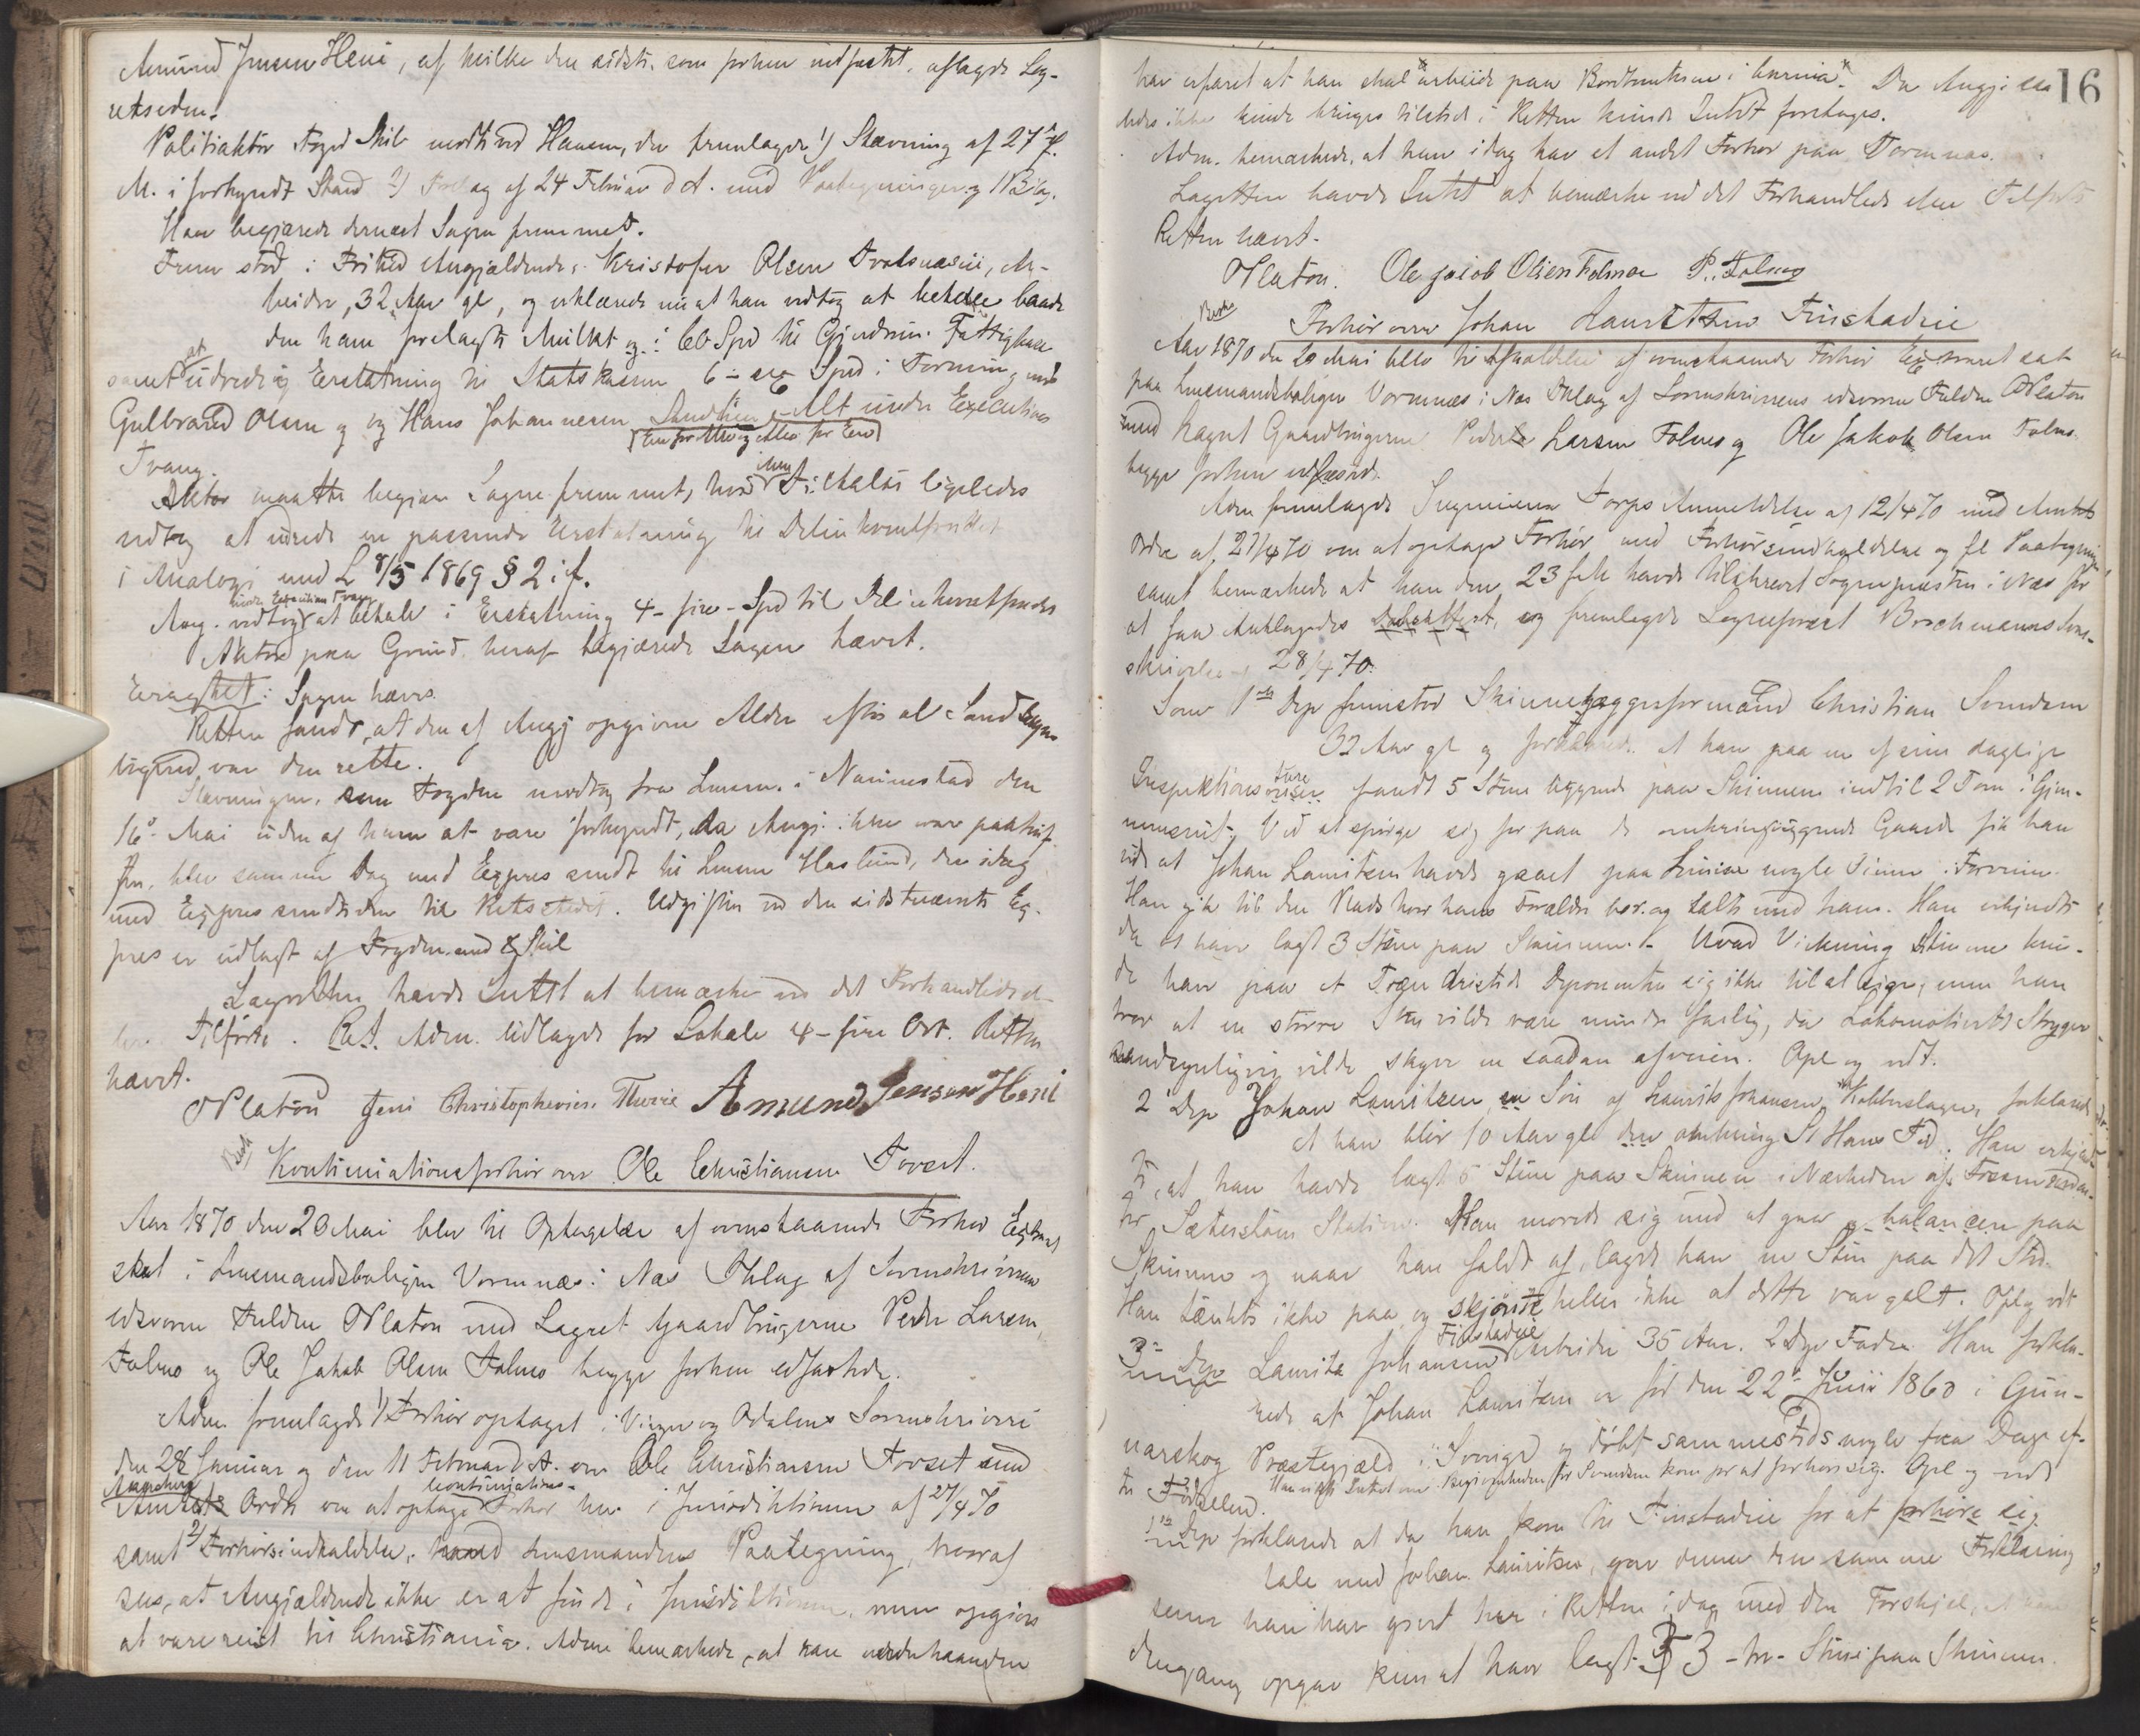 Amund Jensen Heni, af hvilke den sidste som forhen edfæstet, aflagde Lag-
retseden.
Politiaktor Foged Mile mødte ved Hansen, der fremlagde 1) Stævning af 27 f.
M. i forkyndt Stand 2) Foretag af 24 Februar d A. med Paategninger og 1 Bilag.
Han begjærede dernæst Sagen fremmet.
Frem stod i Frihed Angjældende, Kristofer Olsen, Ar-
beider, 32 Aar gl, og erklærede nu at han vedtog at betale baade
den ham forelagte Mulkt og i 66 Spd til Gjerdrum Fattigkasse
samt at udrede i Erstatning til Statskassen 6 - sex Spd i Forening med
Gulbrand Olsen og og Hans Johannesen - Alt under Executions
(Een for Alle og Alle for Een)
Tvang.
Aktor maatte begjære Sagen fremmet, hvis Ang. ikke ligeledes
vedtog at udrede en passende Erstatning til Delinkventfondet
i Analogi med L 8/5 1869 § 2 i f.
under Execution Tvang
Ang. vedtog at betale i Erstatning 4 - fire - Spd til Delinkventfondet
Aktor paa Grund heraf begjærede Sagen hævet.
Eragtet: Sagen hæves
Retten fandt, at den af Angj opgivne Alder efter al Sandsyn-
lighed var den rette.
Stævningen, som Fogden modtog fra Lensm. i Nannestad den
16de Mai uden af ham at være forkyndt, da Angj. ikke var paatruf-
fen, blev samme Dag med Expres sendt til Lensm Haslund, der idag
med Expres sendte den til Retsstedet. Udgiften ved den sidstnævnte Ex-
pres er udlagt af Fogden med Skil
Lagretten havde Intet at bemærke ved det Forhandlede el-
ler Tilførte. Adm. Udlagde for Lokale 4 - fire Ort. Retten
hævet.
OPlatou Jens Christophersen Amund Jensen Heni
Kontinuationsforhør over Ole Christiansen Fovset.
Aar 1870 den 20 Mai blev til Optagelse af ovenstaaende Forhør Extraret
sat i Lensmandsboligen Vormnæs i Næs Thlag af Sorenskriveren
edsvorne Fuldm OPlatou med Lagret Gaardbrugerne Peder Larsen
Folmo og Ole Jakob Olsen Folmo begge forhen edfæstede.
Adm fremlagde 1) Forhør optaget i Vinger og Odalens Sorenskriveri
den 28 Januar og den 11 Februar d A. over Ole Christiansen Fovset med
Amtets Ordre om at optage Kontinuations- Forhør her i Jurisdiktionen af 27/4 70
samt 2) Forhørsindkaldelse med Lensmandens Paategning, hvoraf
sees, at Angjældende ikke er at finde i Jurisdiktionen, men opgives
at være reist til Christiania. Adm bemærkede, at han underhaanden
16
har erfaret at han skal "arbeide paa Bordtomten i". Da Angj saa
ledes ikke kunde bringes tilstede i Retten kunde Intet foretages.
Adm. bemærkede, at han idag har et andet Forhør paa Vormnæs.
Lagretten havde Intet at bemærke ved det Forhandlede eller Tilførte
Retten hævet.
OPlatou. Ole Jacob Olsen Folmoe P. L. Folmo
Forhør over Johan Lauritzen Finstadeie
Aar 1870 den 20 Mai blev til Afholdelse af ovenstaaende Forhør Extraret sat
paa Lensmandsboligen Vormnæs i Næs Thlag af Sorenskriverens edsvorne Fuldm OPlatou
med Lagret Gaardbrugerne Peder Larsen Folmo og Ole Jakob Olsen Folmo
begge forhen edfæstede.
Adm fremlagde Ingeniør Torps Anmeldelse af 12/4 70 med Amtets
Ordre af 27/4 70 om at optage Forhør med Forhørsindkaldelse og fl Paategning,
samt bemærkede at han den 23 f M. havde tilskrevet Sognepræsten i Næs for
at faa Anklagedes Daabsattest, og fremlagde Sognepræst Brochmanns Svar-
skrivelse 28/4 70.
Som 1ste Dep fremstod Skinnelæggerformand Christian Svendsen
32 Aar gl og forklarede at han paa en af sine daglige
Inspektionsture fandt 5 Stene liggende paa Skinnen indtil 2 Tom i Gjen-
nemsnit. Ved at spørge sig for paa de omkringliggende Gaarde fik han
vide at Johan Lauritsen havde gaaet paa Linien nogle Timer i Forveien.
Han gik til den Plads hvor hans Forældre bor og talte med ham. Han erkjendte
da at have lagt 3 Stene paa Skinnen. - Hvad Virkning Stenene kun-
de have paa et Træn dristede Deponenten sig ikke til at sige, men han
tror at en større Sten vilde være mindre farlig, da Lokomotivets Skyger
sandsynligvis vilde skyve en saadan afveien. Opl og vdt.
2 Dep Johan Lauritzen, en Søn af Laurits Johansen, forklarede
at han blir 10 Aar gl den omkring St Hans Tid. Han erkjend-
te, at han havde lagt 5 Stene paa Skinnen i Nærheden af
for Sæterstøens Station. Han morede sig med at gaa og balancere paa
Skinnen og naar han faldt af, lagde han en Sten paa det Sted.
Han tænkte ikke paa og skjønte heller ikke at dette var galt. Opl og vdt
3die Dep Laurits Johansen Finstadeie Arbeider 35 Aar. 2 Dep Fader. Han forkla-
rede at Johan Lauritsen er født den 22de Juni 1860 i Gun-
narskog Præstegjæld i Sverige og døbt sammesteds nogle faa Dage ef-
ter Fødselen. Han vidste Intet om Begivenheden før Svendsen kom for at forhøre sig. Opl og vdt
1ste Dep forklarede at da han kom til Finstadeie for at forhøre sig
tale med Johan Lauritsen, gav denne den samme Forklaring
som han har givet her i Retten idag med den Forskjel, at han
dengang opgav kun at have lagt 3 - tre - Stene paa Skinnen.